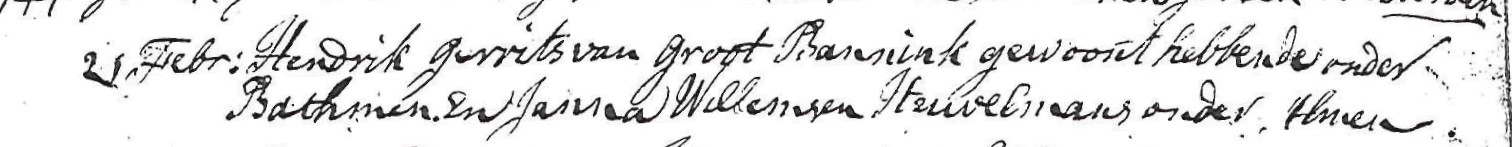 21 Febr: Hendrik Gerrits van Groot Bannink gewoont hebbende onder
Bathmen. En Janna Willemsen Heuvelmans onder Almen.